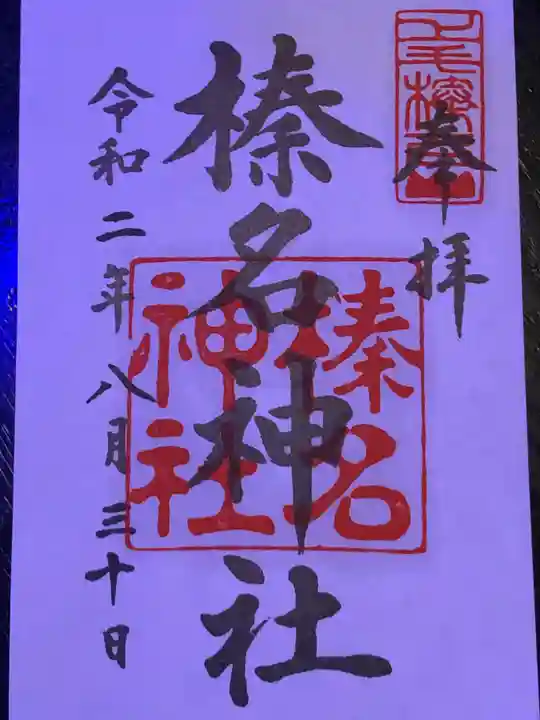 奉拝
榛名神社
令和二年八月三十日
榛名
神社